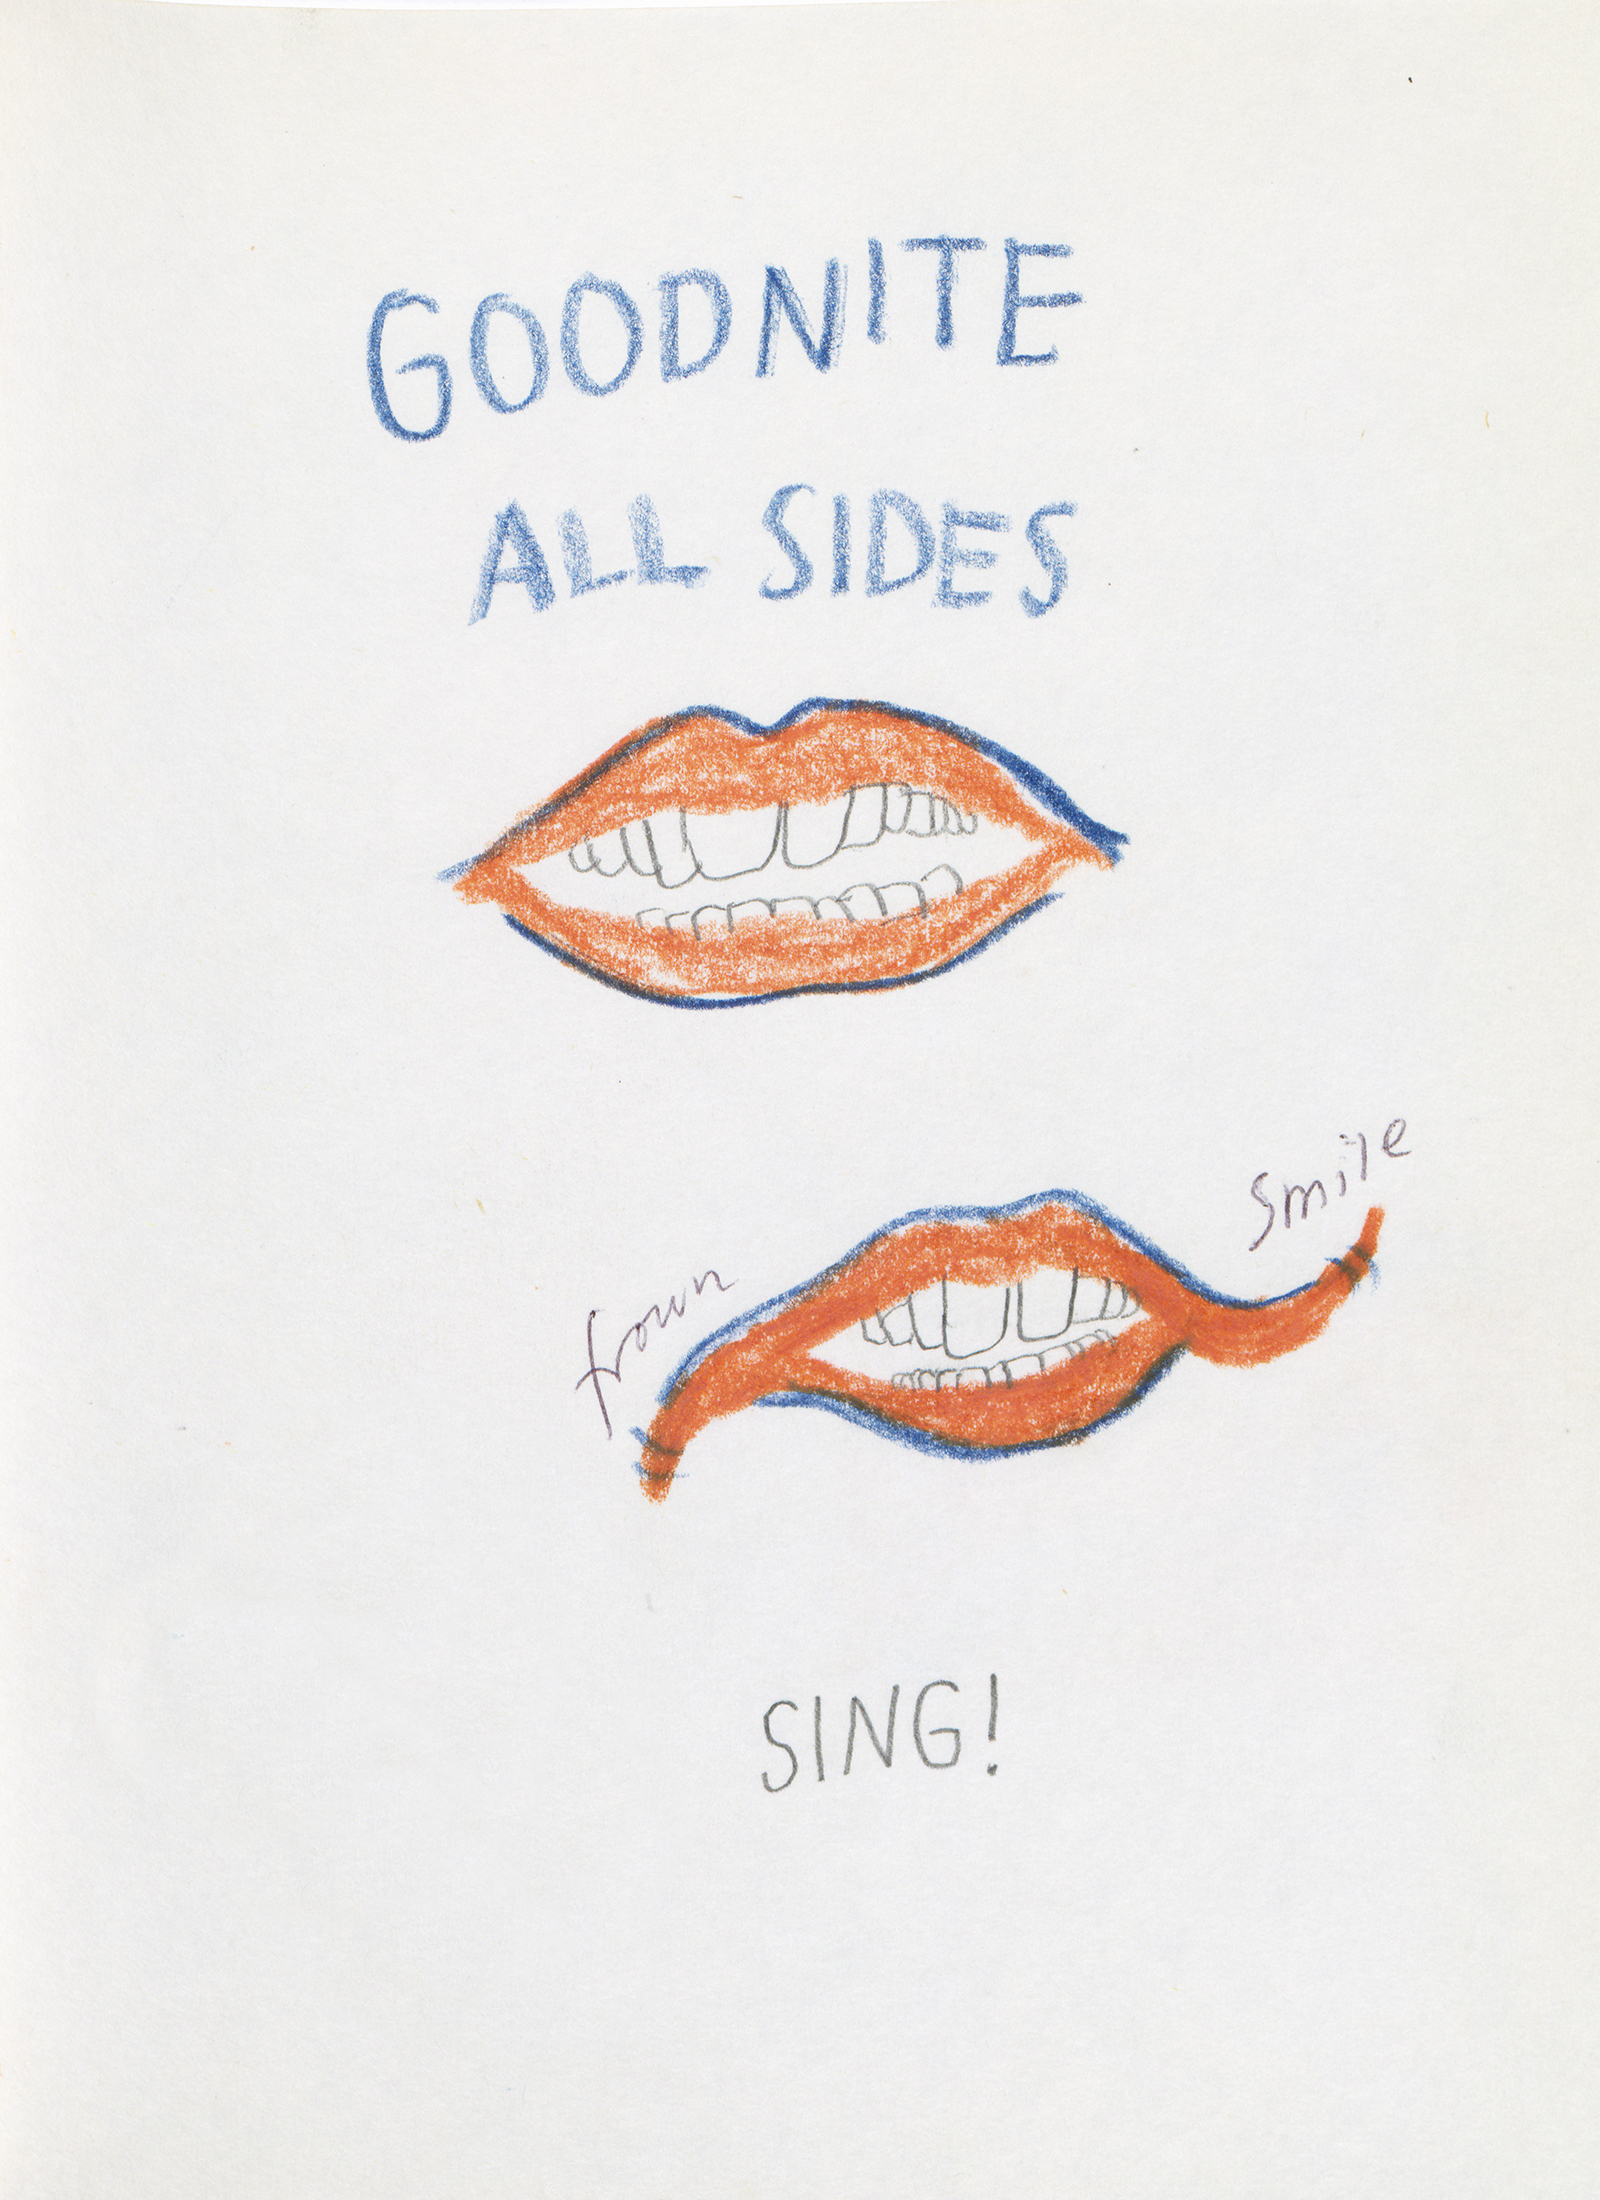 GOODNITE
ALL SIDES
smile
frown
SING!